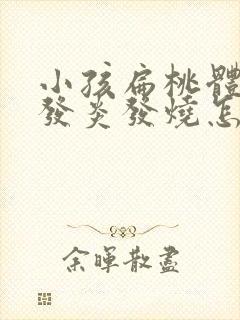 小孩扁桃體
發炎發燒怎
余暉散盡